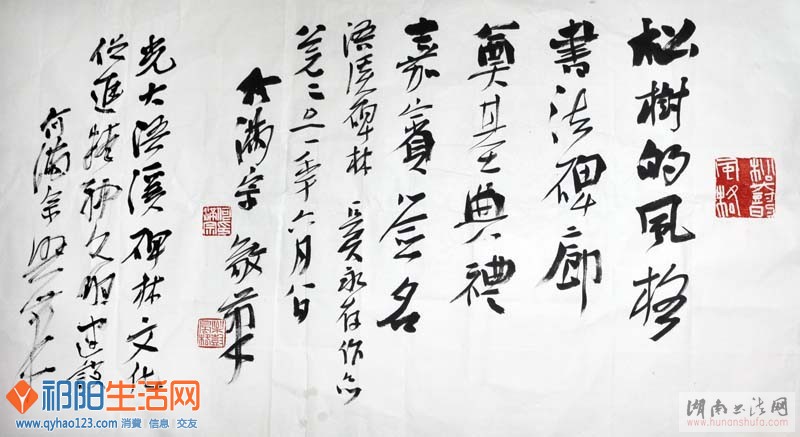 松樹的風格
書法碑廊
奠基典禮
嘉賓簽名
浯溪碑林 永存作念
公元二〇一一年六月八日
何满宗 敬書
光大浯溪碑林文化
促進精神文明建設
何满宗
松樹風格
祁阳生活网
www.qyhao123.com 消費 信息 交友
湖南书法网
www.hunanshufa.com